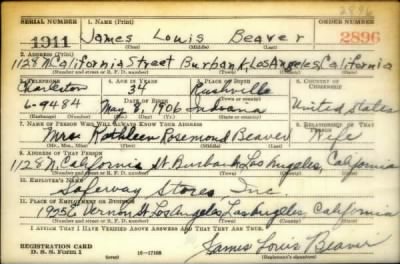 2896
SERIAL NUMBER 1. NAME (Print) ORDER NUMBER
1911 James Louis Beaver 2896
(First) (Middle) (Last)
2. ADDRESS (Print)
1128 N California Street Burbank Los Angeles California
(Number and street or R. F. D. number) (Town) (County) (State)
3. TELEPHONE 4. AGE IN YEARS 5. PLACE OF BIRTH 6. COUNTRY OF CITIZENSHIP
Charleston 34 Rushville
DATE OF BIRTH (Town or county)
6-9484 May 8, 1906 Indiana United States
(Exchange) (Number) (Mo.) (Day) (Yr.) (State or country)
7. NAME OF PERSON WHO WILL ALWAYS KNOW YOUR ADDRESS 8. RELATIONSHIP OF THAT PERSON
Mrs Kathleen Rosemond Beaver Wife
(Mr., Mrs., Miss) (First) (Middle) (Last)
9. ADDRESS OF THAT PERSON
1128 N. California St Burbank Los Angeles, California
(Number and street or R. F. D. number) (Town) (County) (State)
10. EMPLOYER'S NAME
Safeway Stores Inc.
11. PLACE OF EMPLOYMENT OR BUSINESS
1925 E Vernon St Los Angeles Los Angeles California
(Number and street or R. F. D. number) (Town) (County) (State)
I AFFIRM THAT I HAVE VERIFIED ABOVE ANSWERS AND THAT THEY ARE TRUE.
REGISTRATION CARD
D. S. S. Form 1 16-17105 James Louis Beaver
(Registrant's signature)